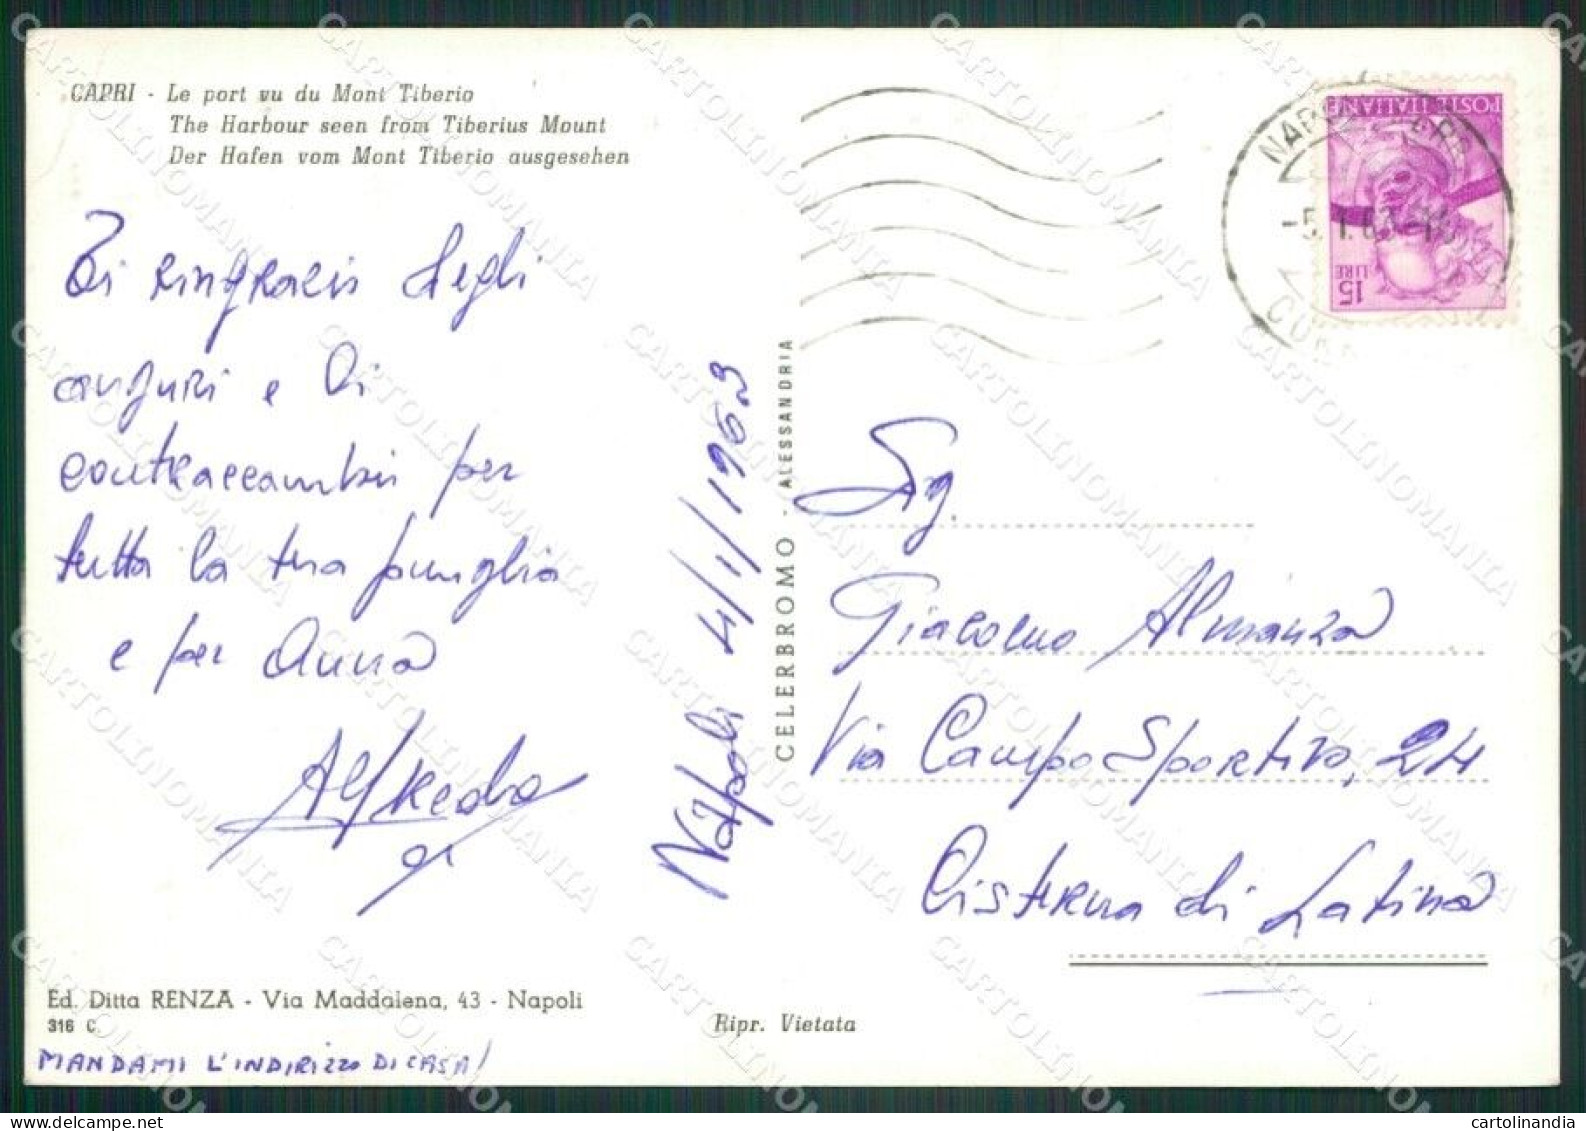 CAPRI - Le port vu du Mont Tiberio
The Harbour seen from Tiberius Mount
Der Hafen vom Mont Tiberio ausgesehen
Ti ringrazio degli
auguri e li
contraccambio per
tutta la tua famiglia
e per Anna
Alfredo
Napoli 4/1/1963
CELERBROMO - ALESSANDRIA
POSTE ITALIANE
15 LIRE
-5.1.63-
Sig.
Giacomo Almanza
Via Campo Sportivo, 24
Cisterna di Latina
Ed. Ditta RENZA - Via Maddalena, 43 - Napoli
316 C.
Ripr. Vietata
MANDAMI L'INDIRIZZO DI CASA!
CARTOLINOMANIA
cartolinandia